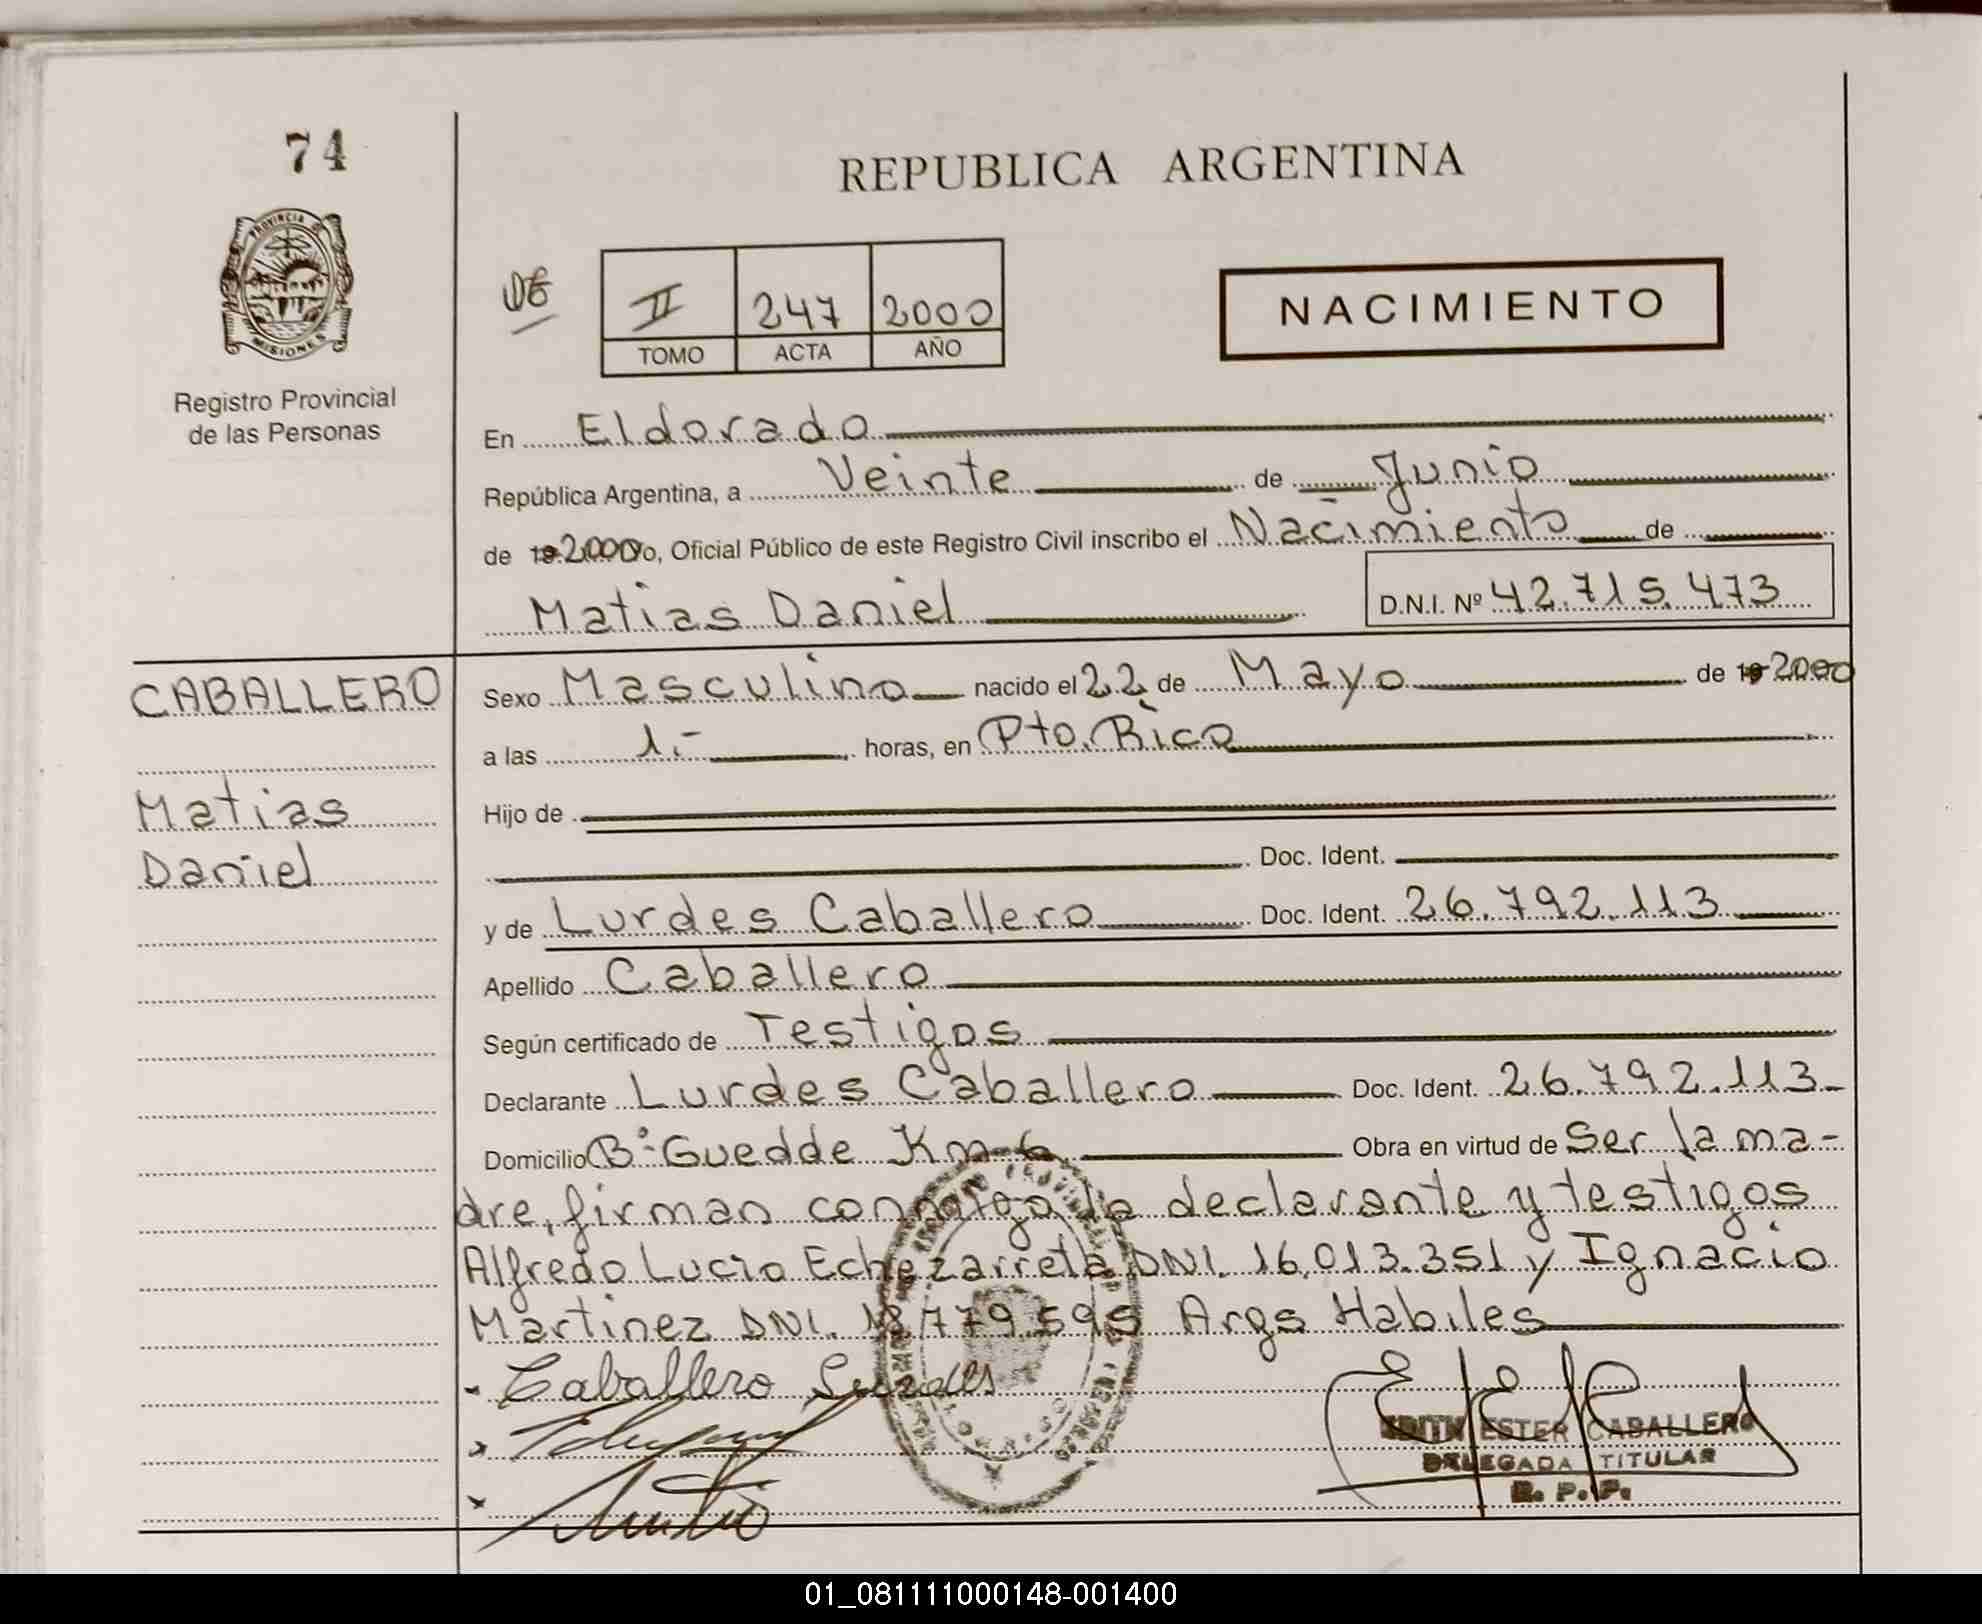 74
REPUBLICA ARGENTINA
PROVINCIA DE
MISIONES
Registro Provincial
de las Personas
II 247 2000
TOMO ACTA AÑO
NACIMIENTO
En Eldorado
República Argentina, a Veinte de Junio
de 19 2000 Yo, Oficial Público de este Registro Civil inscribo el Nacimiento de
Matias Daniel D.N.I. Nº 42.715.473
CABALLERO
Matias
Daniel
Sexo Masculino nacido el 22 de Mayo de 19 2000
a las 1.- horas, en Pto. Rico
Hijo de
Doc. Ident.
y de Lurdes Caballero Doc. Ident. 26.792.113
Apellido Caballero
Según certificado de Testigos
Declarante Lurdes Caballero Doc. Ident. 26.792.113-
Domicilio Bº Guedde Km 6 Obra en virtud de Ser la ma-
dre, firman conmigo la declarante y testigos
Alfredo Lucio Echezarreta DNI. 16.013.351 y Ignacio
Martinez DNI. 18.779.595 Args Habiles
Caballero Lurdes
EDITH ESTER CABALLERO
DELEGADA TITULAR
R. P. P.
01_081111000148-001400